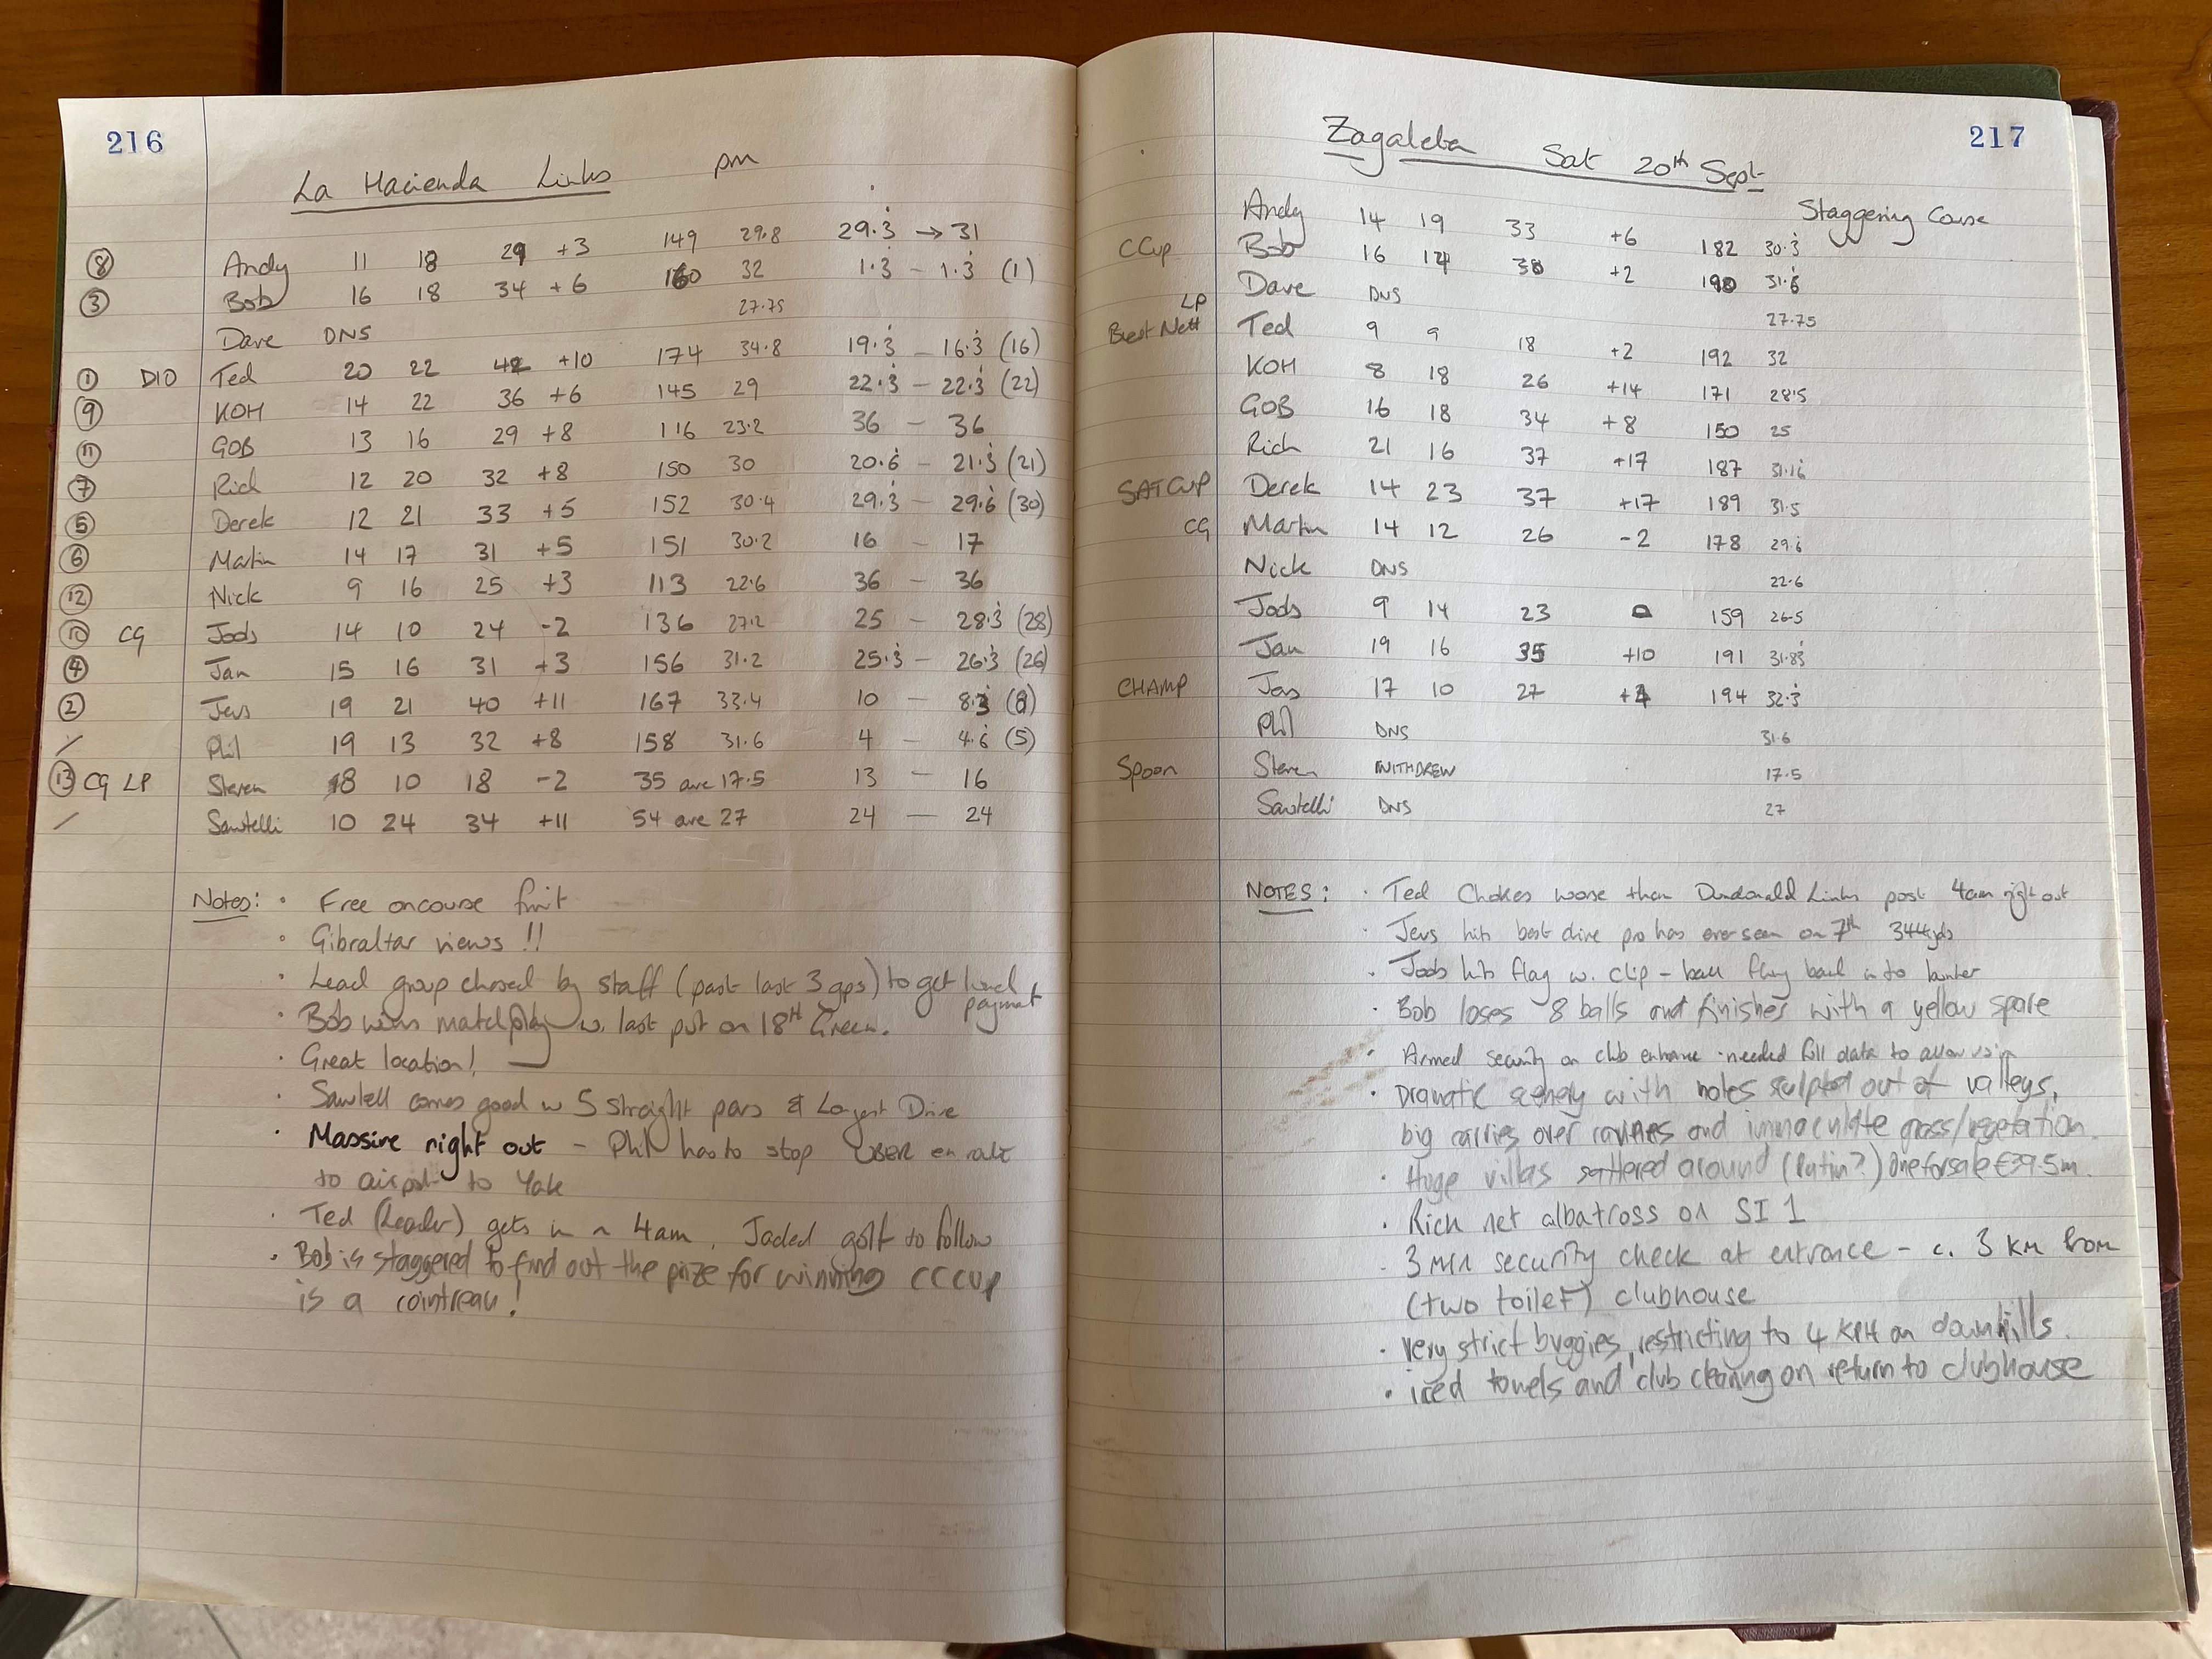 216
La Hacienda Links pm
⑧ Andy 11 18 29 +3 149 29.8 29.3̇ → 31
③ Bob 16 18 34 +6 160 32 1.3̇ – 1.3̇ (1)
Dave DNS 27.75
① D10 Ted 20 22 42 +10 174 34.8 19.3̇ – 16.3̇ (16)
⑨ KOH 14 22 36 +6 145 29 22.3̇ – 22.3̇ (22)
⑪ GOB 13 16 29 +8 116 23.2 36 – 36
⑦ Rich 12 20 32 +8 150 30 20.6̇ – 21.3̇ (21)
⑤ Derek 12 21 33 +5 152 30.4 29.3̇ – 29.6̇ (30)
⑥ Martin 14 17 31 +5 151 30.2 16 – 17
⑫ Nick 9 16 25 +3 113 22.6 36 – 36
⑩ CG Jods 14 10 24 -2 136 27.2 25 – 28.3̇ (28)
④ Jan 15 16 31 +3 156 31.2 25.3̇ – 26.3̇ (26)
② Jevs 19 21 40 +11 167 33.4 10 – 8.3̇ (8)
/ Phil 19 13 32 +8 158 31.6 4 – 4.6̇ (5)
⑬ CG LP Steven 8 10 18 -2 35 ave 17.5 13 – 16
/ Sawtelli 10 24 34 +11 54 ave 27 24 – 24
Notes: • Free oncourse fruit
• Gibraltar views !!
• Lead group chased by staff (past last 3 gps) to get lunch
payment
• Bob wins matchplay w. last put on 18th Green.
• Great location!
• Sawtell comes good w 5 straight pars & Longest Drive
• Massive night out – Phil has to stop UBER en route
to airport to Yak
• Ted (Leader) gets in ~ 4am. Jaded golf to follow
• Bob is staggered to find out the prize for winning CCCUP
is a cointreau!
217
Zagaleta Sat 20th Sept
Staggering Course
Andy 14 19 33 +6 182 30.3̇
CCup Bob 16 14 30 +2 190 31.6̇
Dave DNS 27.75
LP
Best Nett Ted 9 9 18 +2 192 32
KOH 8 18 26 +14 171 28.5
GOB 16 18 34 +8 150 25
Rich 21 16 37 +17 187 31.16̇
SAT CUP Derek 14 23 37 +17 189 31.5
CG Martin 14 12 26 -2 178 29.6̇
Nick DNS 22.6
Jods 9 14 23 0 159 26.5
Jan 19 16 35 +10 191 31.83̇
CHAMP Jevs 17 10 27 194 32.3̇
Phil DNS 31.6
Spoon Steven WITHDREW 17.5
Sawtelli DNS 27
NOTES: • Ted Chokes worse than Dundonald Links post 4am night out
• Jevs hits best drive pro has ever seen on 7th 344yds
• Jods hits flag w. clip – ball flung back into bunker
• Bob loses 8 balls and finishes with a yellow spare
• Armed security on club entrance needed full data to allow us in
• Dramatic scenery with holes sculpted out of valleys,
big carries over ravines and immaculate grass/vegetation.
• Huge villas scattered around (Putin?) One for sale €39.5m.
• Rich net albatross on SI 1
• 3 min security check at entrance – c. 3 km from
(two toilet) clubhouse
• very strict buggies, restricting to 4 KPH on downhills.
• iced towels and club cleaning on return to clubhouse